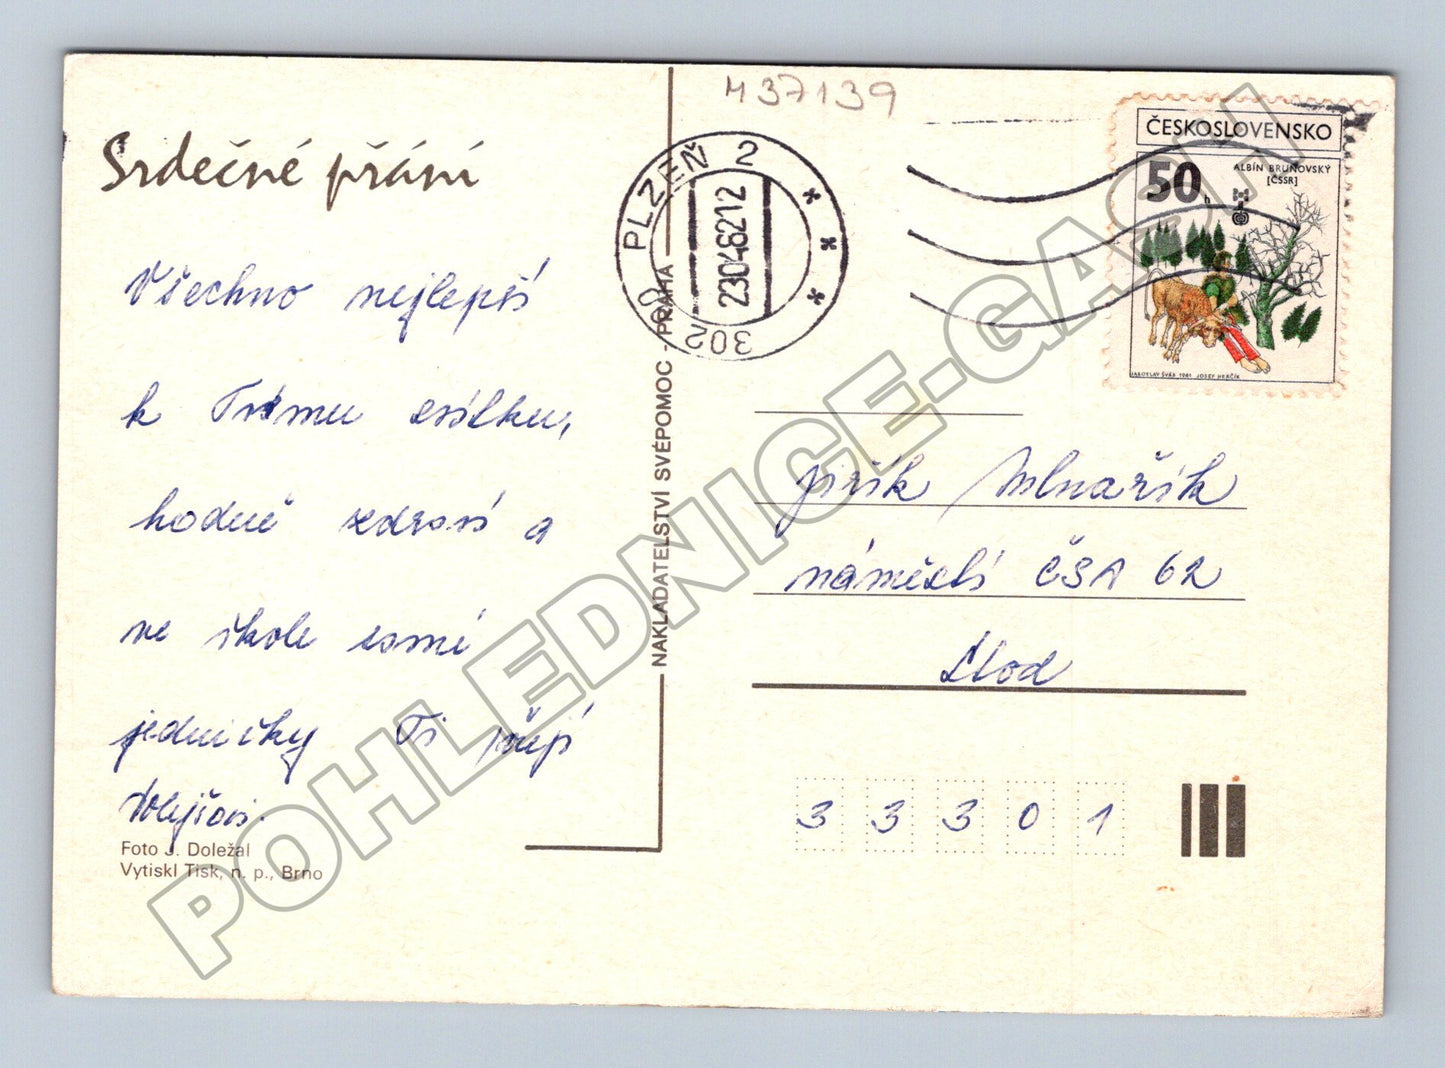 M37139
Srdečné přání
Všechno nejlepší
k Tvému svátku,
hodně zdraví a
ve škole samé
jedničky Ti přejí
Foto J. Doležal
Vytiskl Tisk, n. p., Brno
NAKLADATELSTVÍ SVÉPOMOC - PRAHA
PLZEŇ 2
23.04.82 12
302 00
ČESKOSLOVENSKO
50 h
ALBÍN BRUNOVSKÝ
[ČSSR]
JAROSLAV ŠVÁB 1981 JOSEF HERČÍK
Jiřík Mlnařík
náměstí ČSA 62
Stod
33301
POHLEDNICE-GASH